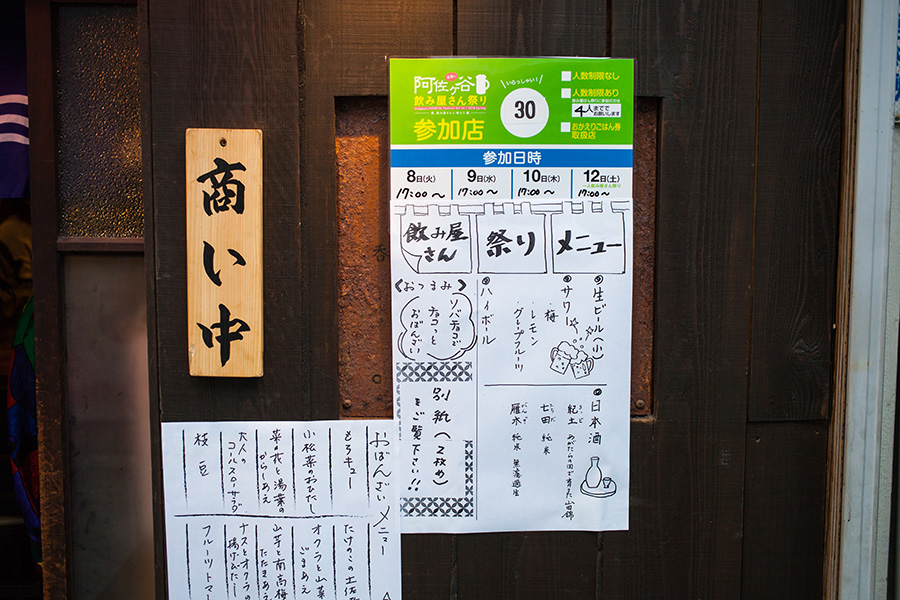 商い中
阿佐ヶ谷
飲み屋さん祭り
参加店
いらっしゃい！
30
人数制限なし
人数制限あり
4人までで
お願いします
おかえりごはん券
取扱店
参加日時
8日(火)
9日(水)
10日(木)
12日(土)
一人飲み屋さん祭り
17:00〜
17:00〜
17:00〜
17:00〜
飲み屋さん
祭り
メニュー
生ビール(小)
サワー
・梅
・レモン
・グレープフルーツ
ハイボール
《おつまみ》
ソバチョコで
チョコっと
おばんざい
別紙(2枚め)
をご覧下さい!!
日本酒
紀土 みがたらの国で育った山田錦
七田 純米
雁木 純米 無濾過生
おばんざいメニュー
もろキュー
小松菜のおひたし
菜の花と湯葉の
からしあえ
大人の
コールスローサラダ
枝豆
たけのこの土佐
オクラと山菜
ごまあえ
山芋と南高梅
たたきあえ
ナスとオクラの
揚げびたし
フルーツトマ